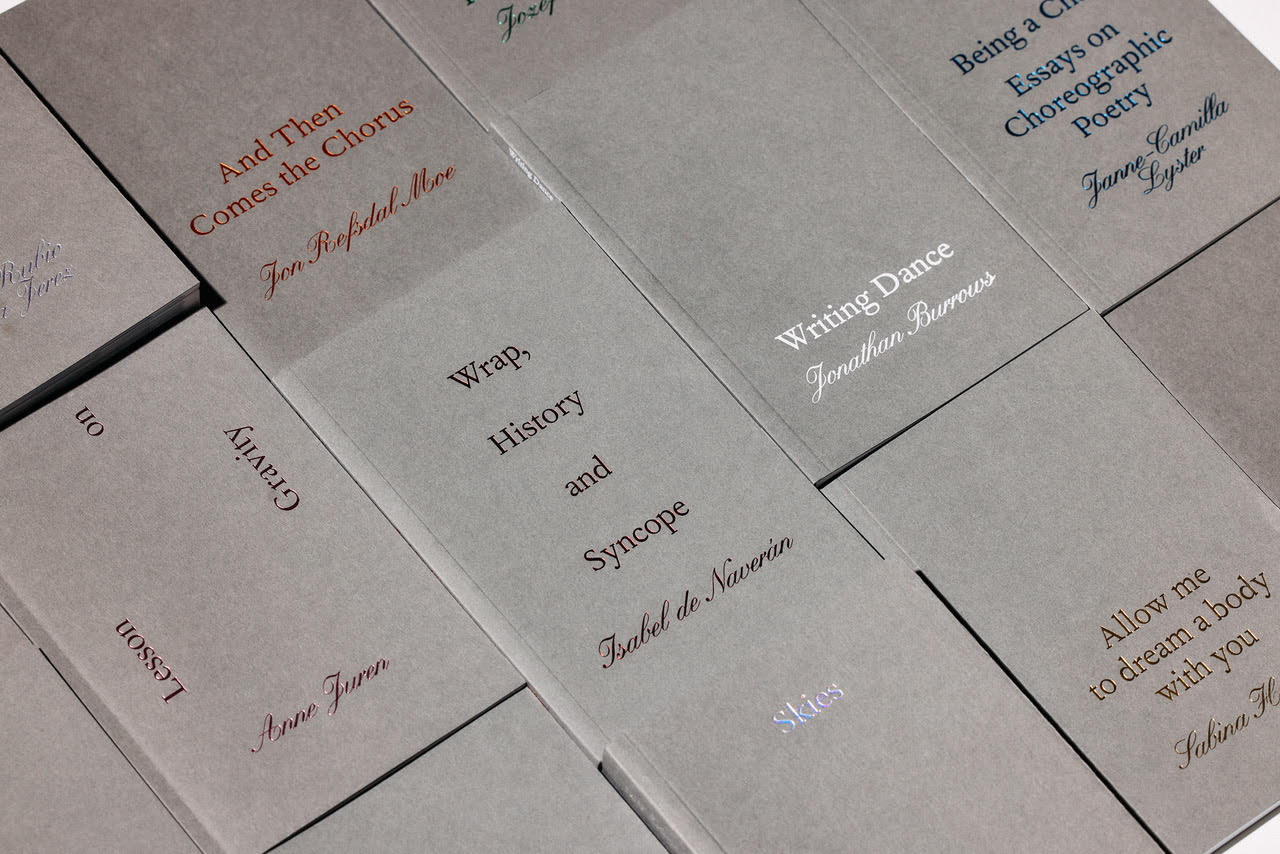 And Then
Comes the Chorus
Jon Refsdal Moe
Essays on
Choreographic
Poetry
Janne-Camilla
Lyster
Writing Dance
Writing Dance
Jonathan Burrows
Rubio
Jerez
on
Gravity
Lesson
Anne Juren
Wrap,
History
and
Syncope
Isabel de Naverán
Skies
Allow me
to dream a body
with you
Sabina
Being a